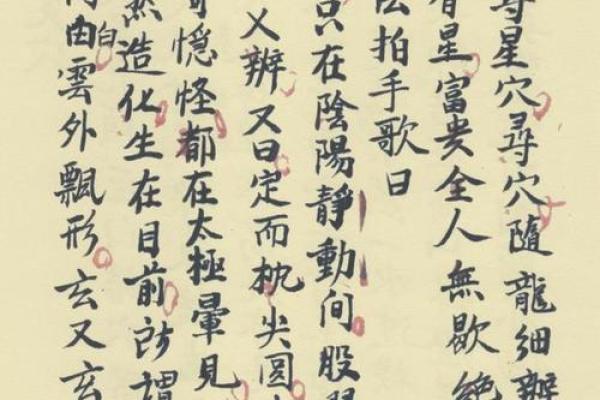 星穴尋穴隨龍細辦
星富貴全人無歇絕
拍手歌曰
只在陰陽靜動间股
乂辨又曰定而枕尖圓
憶怪都在太極暈見
然造化生在目前所謂
由白雲外飄形玄又玄